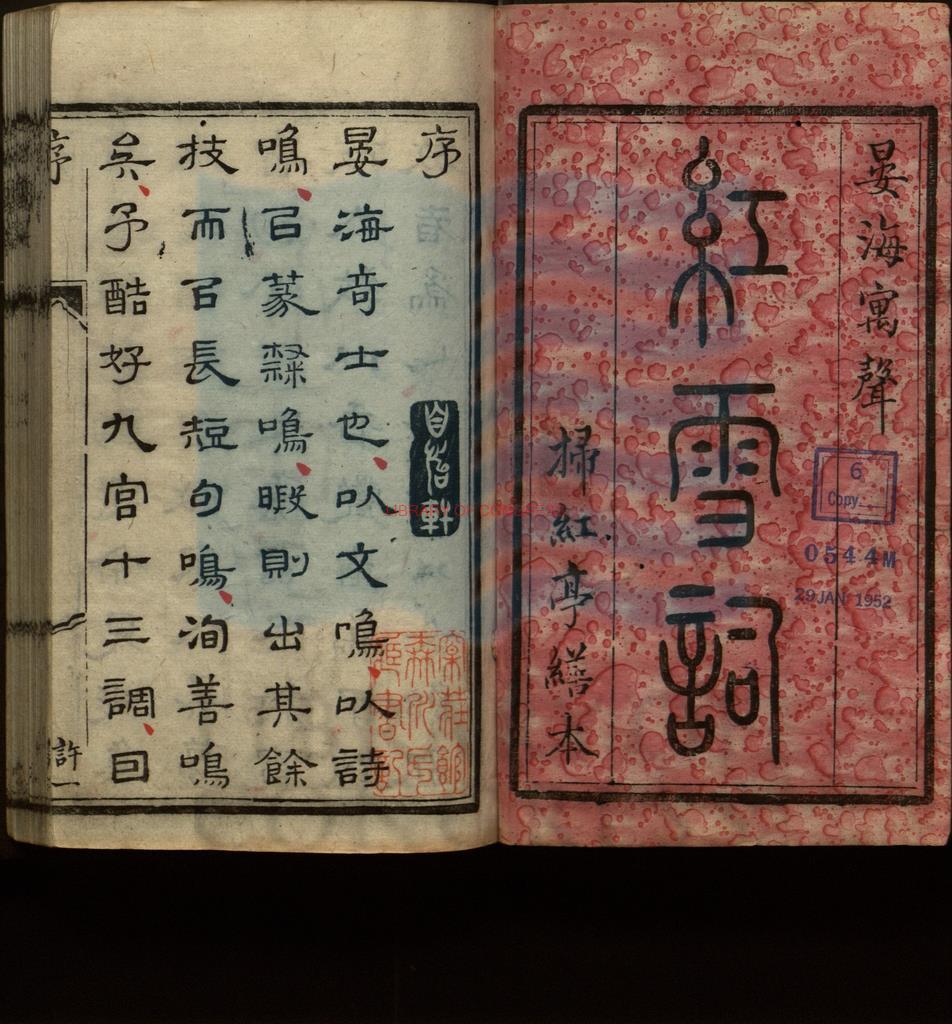 晏海寓聲
紅雪詞
掃紅亭繕本
6
Copy
0544M
29 JAN 1952
LIBRARY OF CONGRESS
序
晏海竒士也以文鳴以詩
鳴㠯篆隸鳴暇則出其餘
技而㠯長短句鳴洵善鳴
矣予酷好九宮十三調曰
序
許一